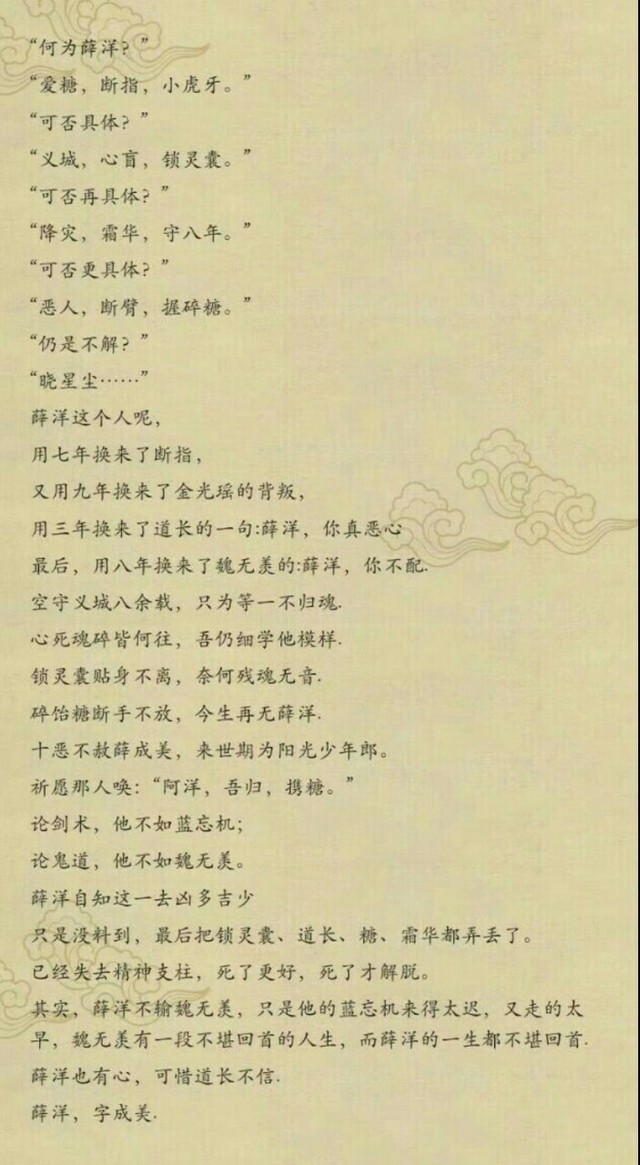 “何为薛洋？”
“爱糖，断指，小虎牙。”
“可否具体？”
“义城，心盲，锁灵囊。”
“可否再具体？”
“降灾，霜华，守八年。”
“可否更具体？”
“恶人，断臂，握碎糖。”
“仍是不解？”
“晓星尘……”
薛洋这个人呢，
用七年换来了断指，
又用九年换来了金光瑶的背叛，
用三年换来了道长的一句:薛洋，你真恶心
最后，用八年换来了魏无羡的:薛洋，你不配.
空守义城八余载，只为等一不归魂.
心死魂碎皆何往，吾仍细学他模样.
锁灵囊贴身不离，奈何残魂无音.
碎饴糖断手不放，今生再无薛洋.
十恶不赦薛成美，来世期为阳光少年郎。
祈愿那人唤：“阿洋，吾归，携糖。”
论剑术，他不如蓝忘机；
论鬼道，他不如魏无羡。
薛洋自知这一去凶多吉少
只是没料到，最后把锁灵囊、道长、糖、霜华都弄丢了。
已经失去精神支柱，死了更好，死了才解脱。
其实，薛洋不输魏无羡，只是他的蓝忘机来得太迟，又走的太
早，魏无羡有一段不堪回首的人生，而薛洋的一生都不堪回首.
薛洋也有心，可惜道长不信.
薛洋，字成美.